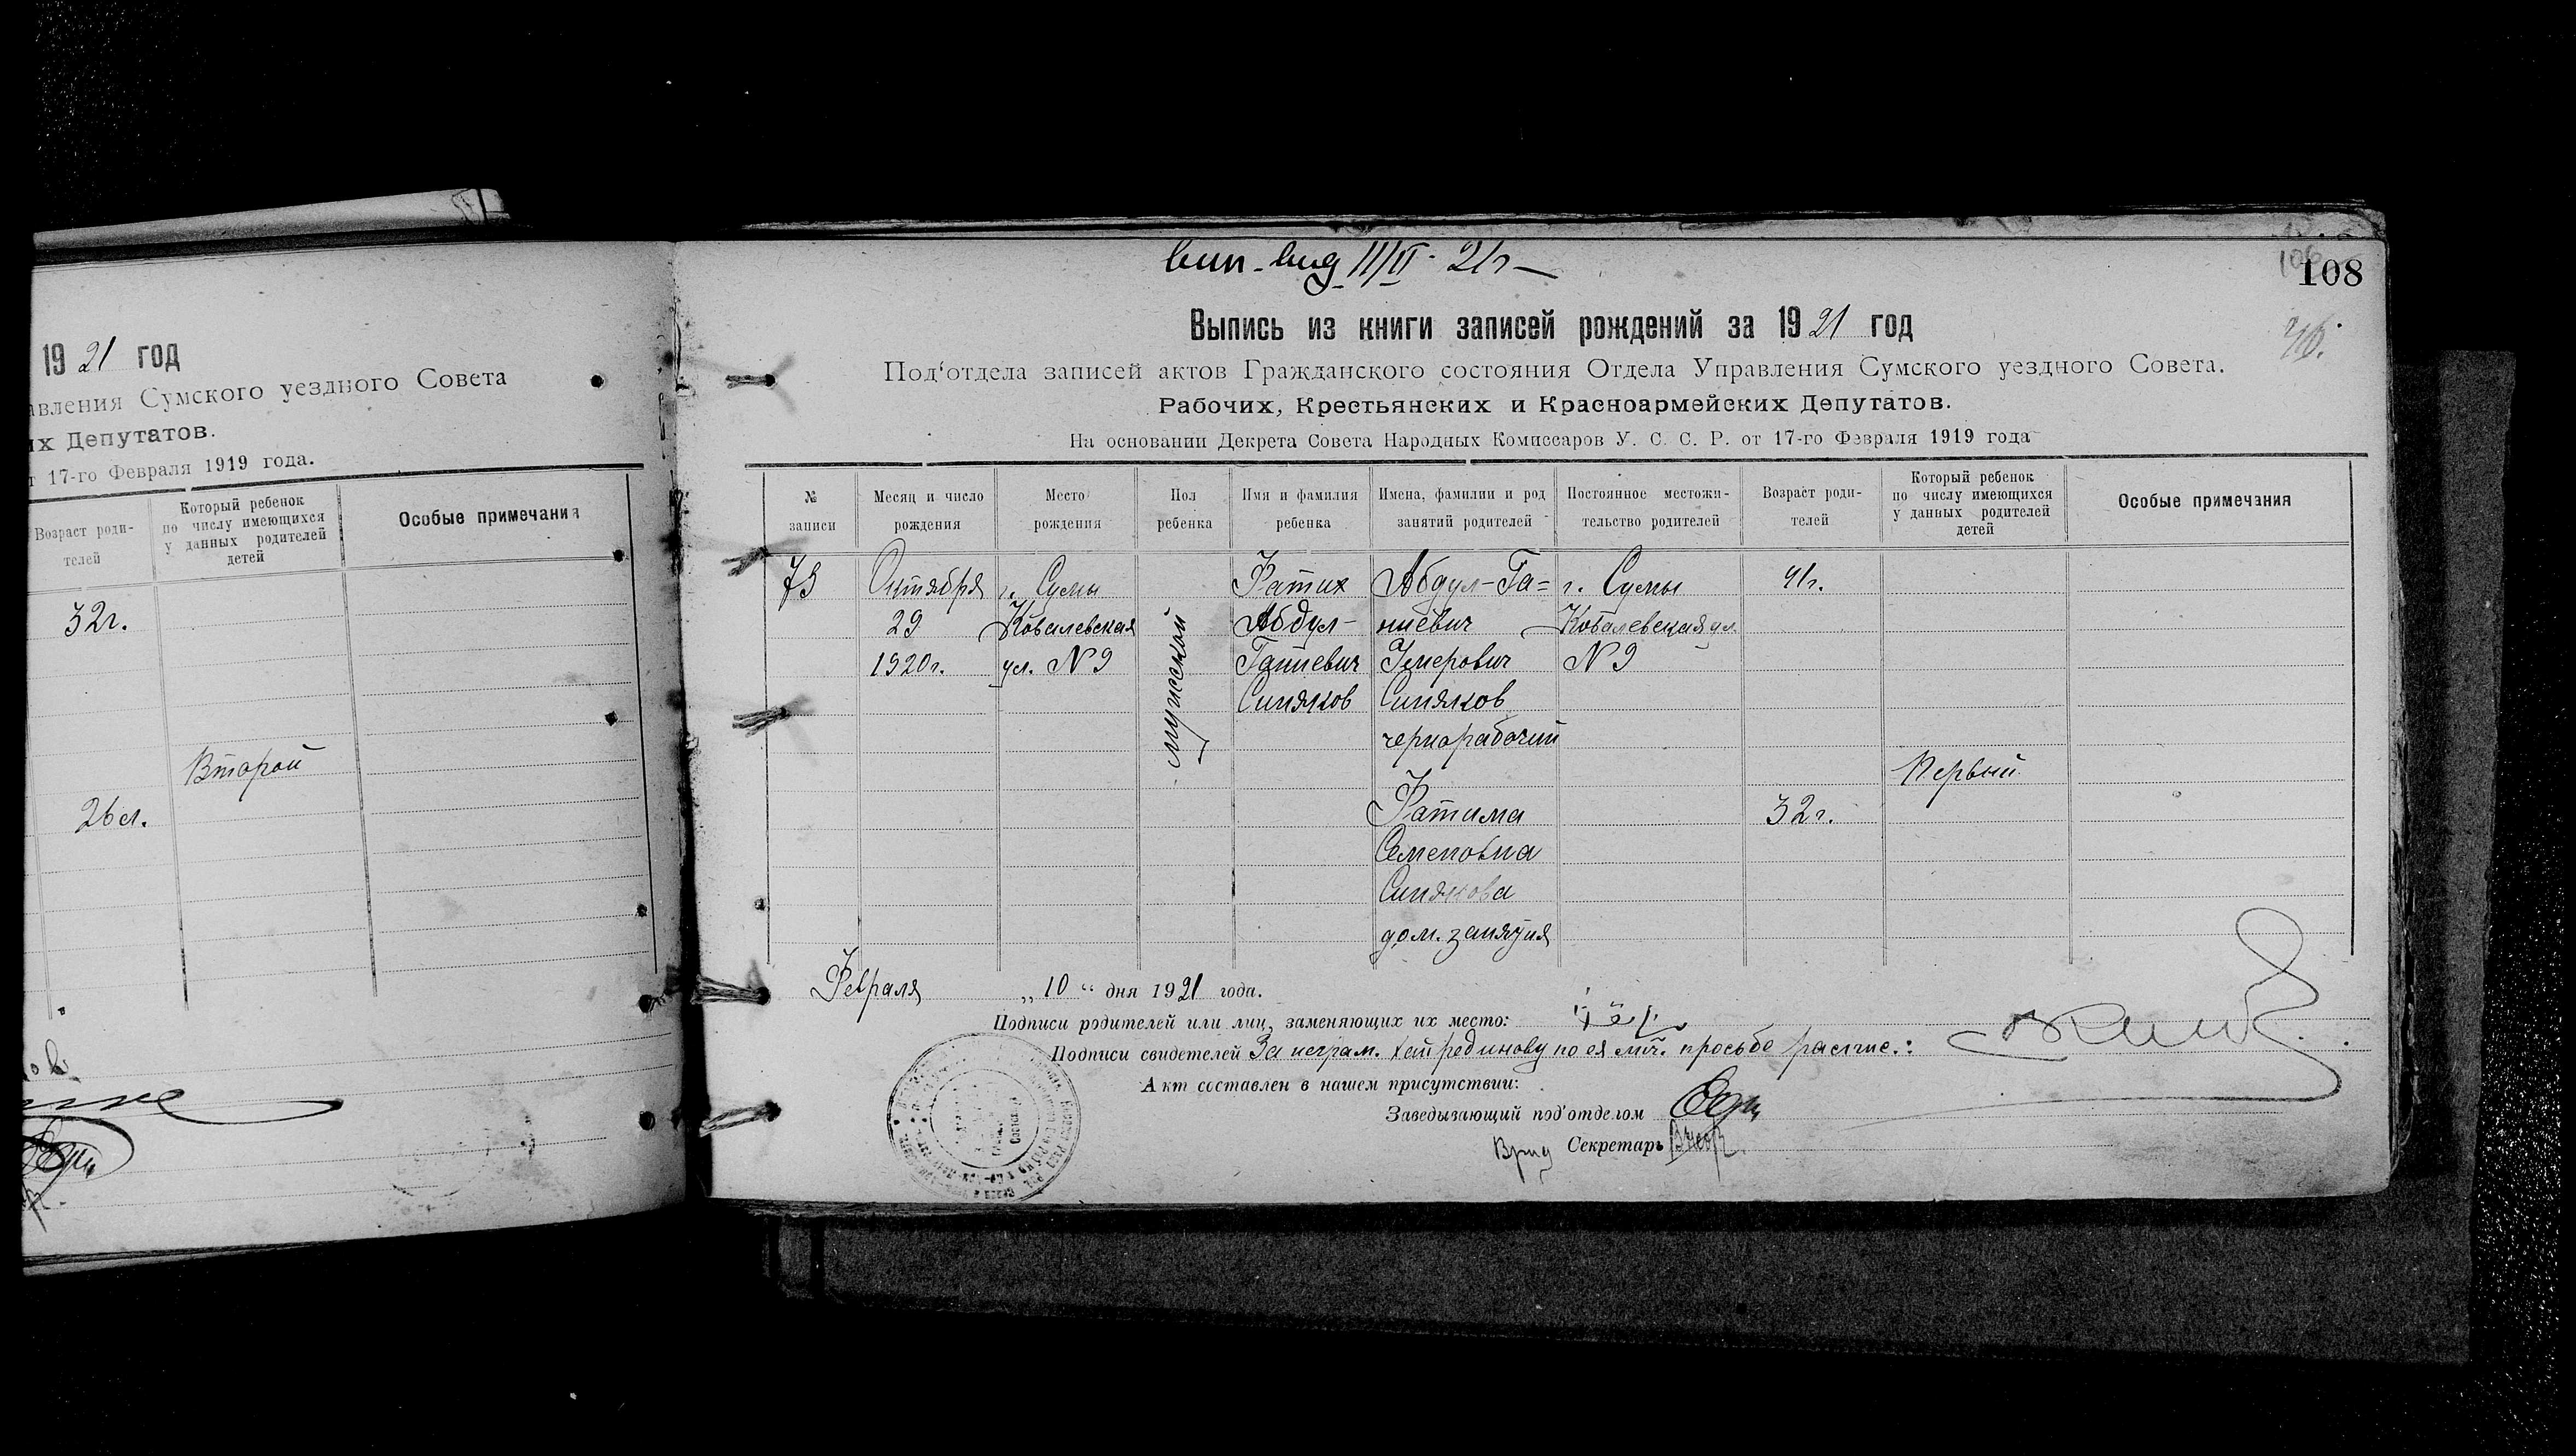 19 21 год
авления Сумского уездного Совета
их Депутатов.
т 17-го Февраля 1919 года.
Возраст роди-
телей
Который ребенок
по числу имеющихся
у данных родителей
детей
Особые примечания
32г.
Второй
26 л.
вып. выд 11/II 21г
106
108
Выпись из книги записей рождений за 19 21 год
Под‘отдела записей актов Гражданского состояния Отдела Управления Сумского уездного Совета.
Рабочих, Крестьянских и Красноармейских Депутатов.
На основании Декрета Совета Народных Комиссаров У. С. С. Р. от 17-го Февраля 1919 года
№
записи
Месяц и число
рождения
Место
рождения
Пол
ребенка
Имя и фамилия
ребенка
Имена, фамилии и род
занятий родителей
Постоянное местожи-
тельство родителей
Возраст роди-
телей
Который ребенок
по числу имеющихся
у данных родителей
детей
Особые примечания
Октября
29
1920г.
г. Сумы
Ковалевская
ул. N 9
мужской
Фатих
Абдул-
Ганиевич
Синяков
Абдул-Га=
ниевич
Умерович
Синяков
чернорабочий
Фатима
Семеновна
Синякова
дом. занятия
г. Сумы
Ковалевская ул.
N 9
41г.
32г.
Первый
Февраля „ 10 “ дня 1921 года.
Подписи родителей или лиц, заменяющих их место:
Подписи свидетелей За неграм. Хайрединову по ея лич. просьбе распис.:
Акт составлен в нашем присутствии:
Заведывающий под‘отделом
Врид Секретарь